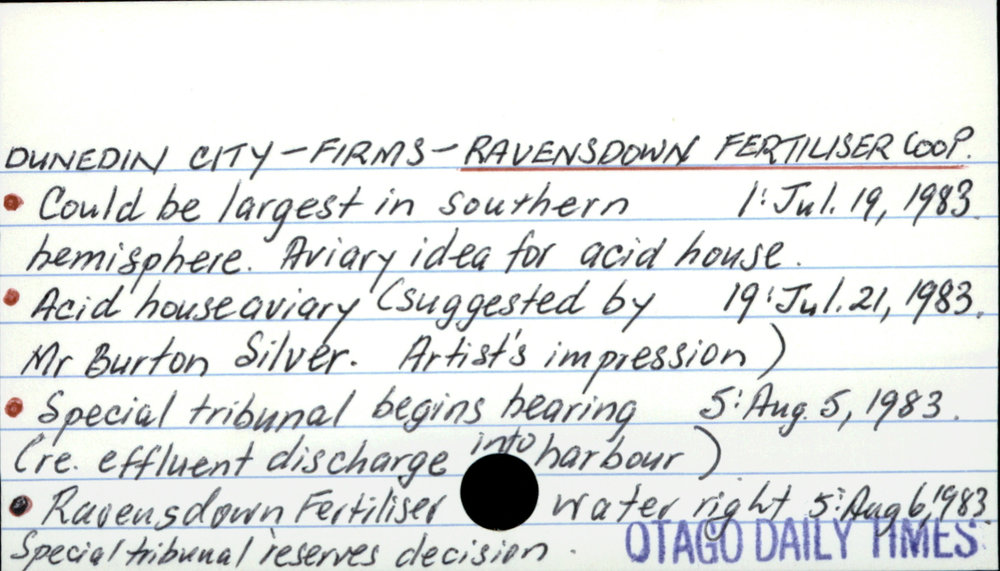 DUNEDIN CITY - FIRMS - RAVENSDOWN FERTILISER COOP.
• Could be largest in southern 1: Jul. 19, 1983.
hemisphere. Aviary idea for acid house.
• Acid house aviary (suggested by 19: Jul. 21, 1983.
Mr Burton Silver. Artist's impression)
• Special tribunal begins hearing 5: Aug. 5, 1983.
(re. effluent discharge into harbour)
• Ravensdown Fertiliser water right 5: Aug 6, 1983
Special tribunal reserves decision.
OTAGO DAILY TIMES